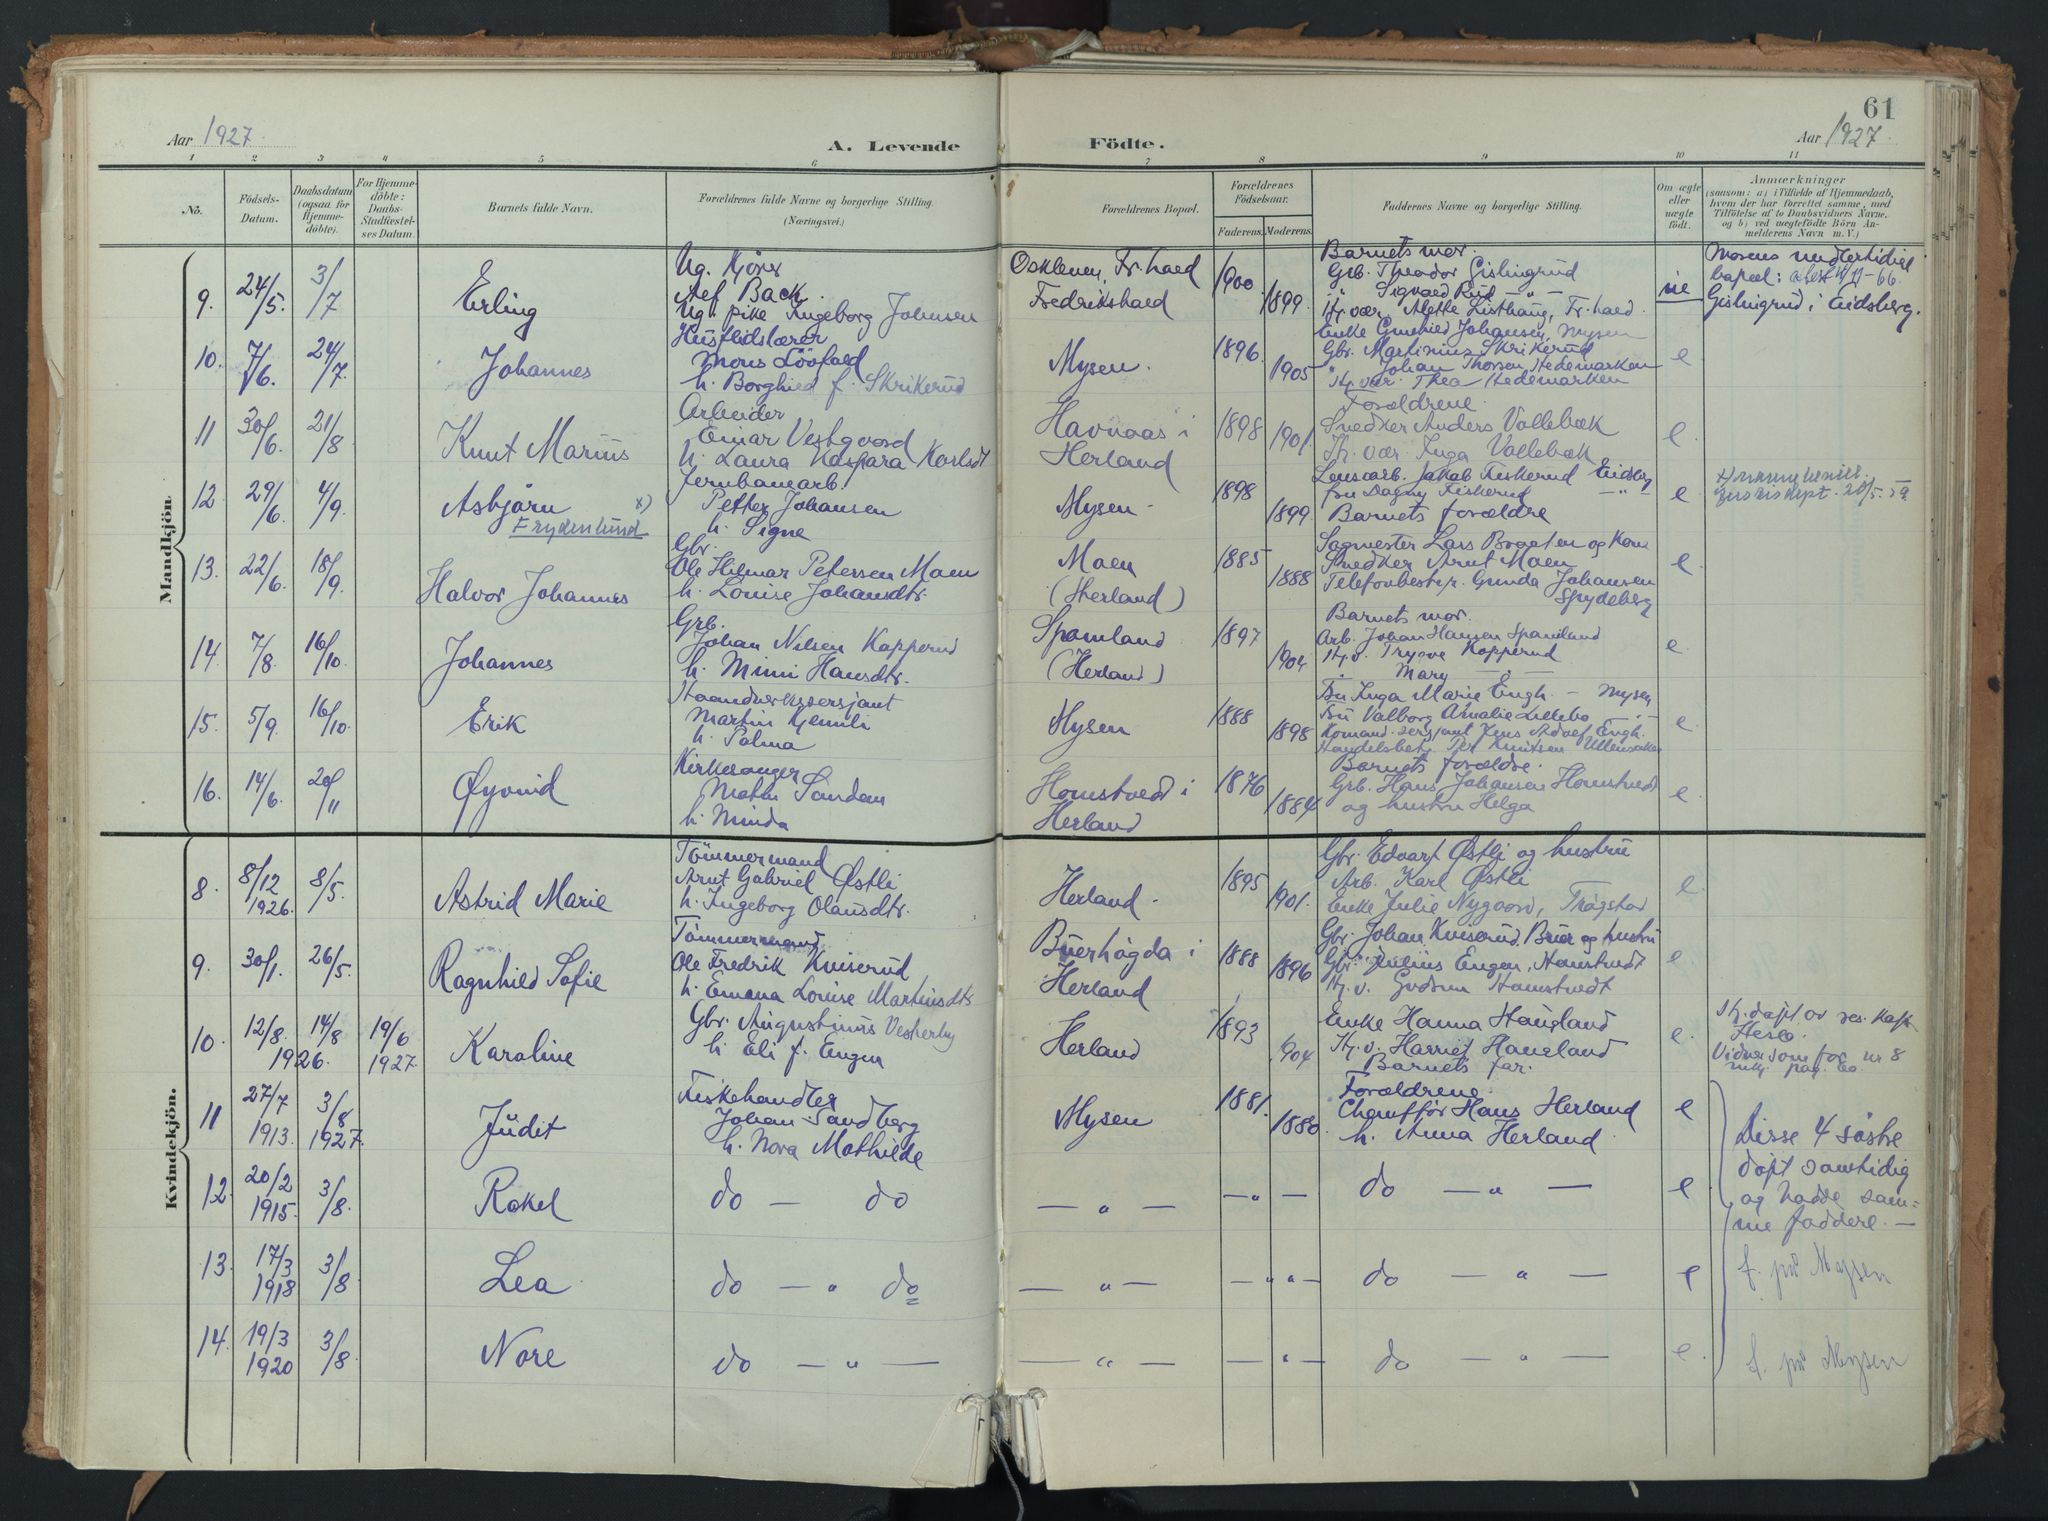 61
Aar 1927
A. Levende
Födte.
Aar 1927
1 2 3 4 5 6 7 8 9 10 11
No.
Födsels-
Datum.
Daabsdatum
(ogsaa for
Hjemme-
döbte).
For Hjemme-
döbte:
Daabs-
Stadfæstel-
ses Datum.
Barnets fulde Navn.
Forældrenes fulde Navne og borgerlige Stilling.
(Næringsvei.)
Forældrenes Bopæl.
Forældrenes
Födselsaar.
Faderens. Moderens.
Faddernes Navne og borgerlige Stilling.
Om ægte
eller
uægte
födt.
Anmærkninger
(saasom: a) i Tilfælde af Hjemmedaab,
hvem der har forrettet samme, med
Tilföielse af to Daabsvidners Navne,
og b) ved uægtefödte Börn An-
melderens Navn m. V.)
Mandkjön.
9. 24/5. 3/7 Erling
Ug. Kjörer
Alf Back.
Ug. pike Ingeborg Johnsen
Fr.hald
Fredrikshald
1900 1899
Barnets mor.
Grb. Theodor Gislingrud
" Sigvald Rud — " —
Fr.hald
ue
Mosens midlertidige
kapel:
Gislingrud i Eidsberg.
10. 7/6. 24/7. Johannes
Husflidslærer
Mons Lövfald
h. Borghild f. Skrikerud
Mysen.
1896. 1905
Enke Gunhild Johansen, Mysen
Gbr. Martinius Skrikerud
" Johan Thorsen Hedemarken
Thea Hedemarken
e
11 30/6. 21/8 Knut Marius
Arbeider
Einar Vestgaard
h. Laura Kaspara Karlsdt
Havnaas i
Herland
1898 1901.
Forældrene.
Snedker Anders Vallebæk
Inga Vallebæk
e
12 29/6. 4/9. Asbjörn x)
Frydenlund
Jernbanearb.
Petter Johansen
h. Signe
Mysen
1898 1899
Jakob Fiskerud Eidsbg
fru Dagny Fiskerud — " —
Barnets forældre
e
20/5. 59
13. 22/6. 18/9. Halvor Johannes
Gbr.
Ole Hilmar Petersen Moen
h. Louise Johansdtr.
Moen
(Herland)
1885 1888
Sagmester Lars Bogeten og Kone
Snedker Arnt Moen
Telefonbestyr. Gunda Johansen
Spydeberg
e
14 7/8. 16/10. Johannes
Grb.
Johan Nilsen Kopperud
h. Mimi Hansdtr.
Spamland
(Herland)
1897 1904
Barnets mor.
Arb. Johan Hansen Spamland
Trygve Kopperud
" Mary — " —
e
15. 5/9. 16/10. Erik
Haandverksersjant
Martin Gjemli
h. Palma
Mysen
1888 1898
Fru Inga Marie Engh. — Mysen
Fru Valborg Amalie Lillebo — " —
e
16. 14/6. 20/11 Øyvind
Kirkesanger
Matin Sandem
h. Minda
Homstvedt i
Herland
1876 1884
Barnets forældre.
Grb. Hans Johansen Homstvedt
og hustru Helga
e
Kvindekjön.
8. 8/12 1926. 8/5. Astrid Marie
Tömmermand
Arnt Gabriel Østli
h. Ingeborg Olausdtr.
Herland.
1895 1901.
Gbr. Edvart Østli og hustru
Arb. Karl Østli
Enke Julie Nygaard, Trögstad
e
9. 30/1. 26/5. Ragnhild Sofie
Tömmermand
Ole Fredrik Kviserud
h. Emma Louise Martinsdtr
Buerhögda i
Herland
1888 1896
Gbr. Johan Kviserud, Buer og hustru
Gbr. Julius Engen, Homstvedt
H.v. Gudrun Homstvedt
e
10. 12/8. 14/8 1926. 19/6 1927. Karoline
Gbr. Augustinus Vesterby
h. Eli f. Engen
Herland
1893 1904
Enke Hanna Haugland
H.v. Harriet Haugland
Barnets far.
e
Hj. døpt av res. kap.
Vidner som for nr 8
pag. 60.
11 27/7 1913. 3/8 1927. Judit
Fiskehandler
Johan Sandberg
h. Nora Mathilde
Mysen
1881. 1880.
Forældrene.
Chauffør Hans Herland
h. Anna Herland.
e
Disse 4 søstre
døpt samtidig
og hadde sam-
me faddere. —
12. 20/2 1915. 3/8. Rakel
do — do
— " —
— " —
do — " —
e
13. 17/3 1918 3/8 Lea
do — " do
— " —
— " " —
do — " —
e
f. på Mysen
14. 19/3 1920 3/8. Nore
do — " —
— " —
— " —
do — " —
e.
f. på Mysen